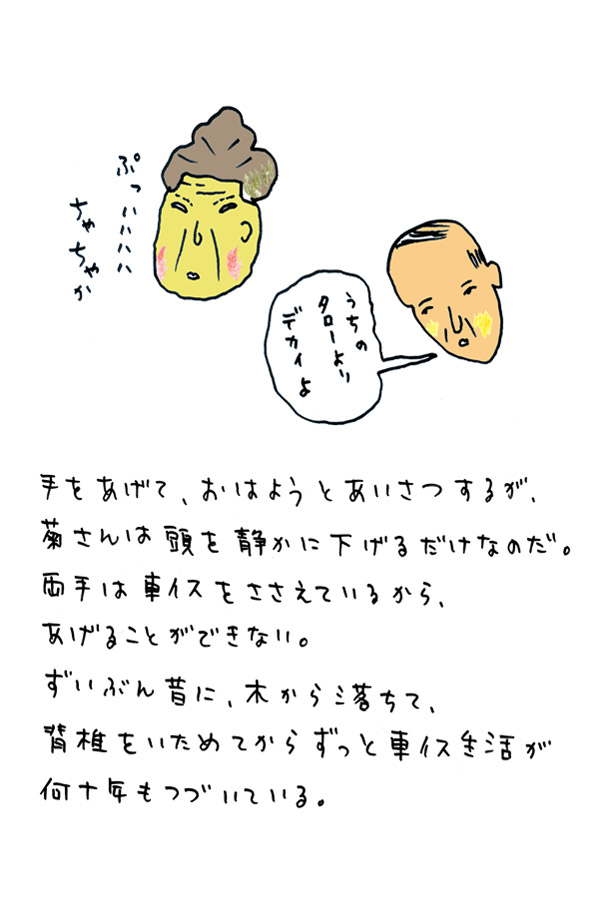 ぷっハハハハ
ちゃちゃか
うちの
タローより
デカイよ
手をあげて、おはようとあいさつするが、
菊さんは頭を静かに下げるだけなのだ。
両手は車イスをささえているから、
あげることができない。
ずいぶん昔に、木から落ちて、
背椎をいためてからずっと車イス生活が
何十年もつづいている。